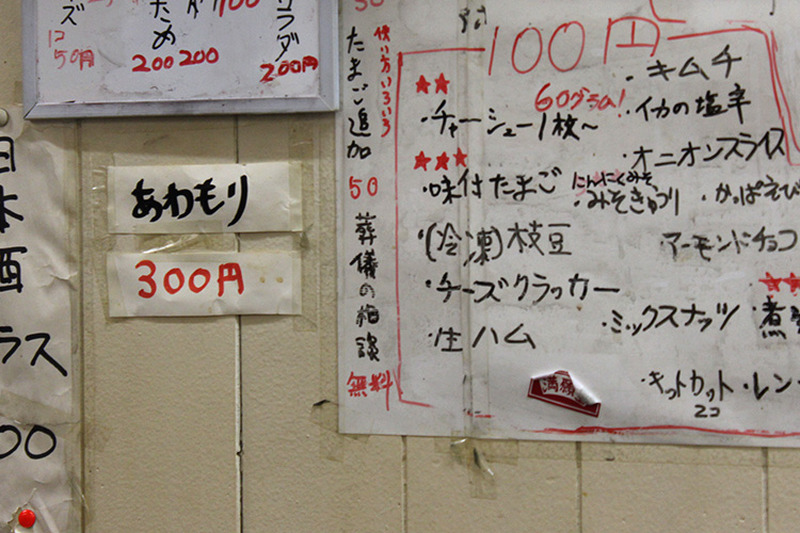 ズ
50円
ため
200
200
100
サラダ
200円
日本酒
ラス
00
あわもり
300円
使い方いろいろ
たまご追加
50
葬儀の相談
無料
100円
★★
・チャーシュー1枚〜
60グラム!
・キムチ
・イカの塩辛
・オニオンスライス
★★★
・味付たまご
にんにくみそ
・みそきゅうり
・かっぱえび
・(冷凍)枝豆
・アーモンドチョコ
・チーズクラッカー
・ミックスナッツ
・生ハム
・キットカット
2コ
・レン